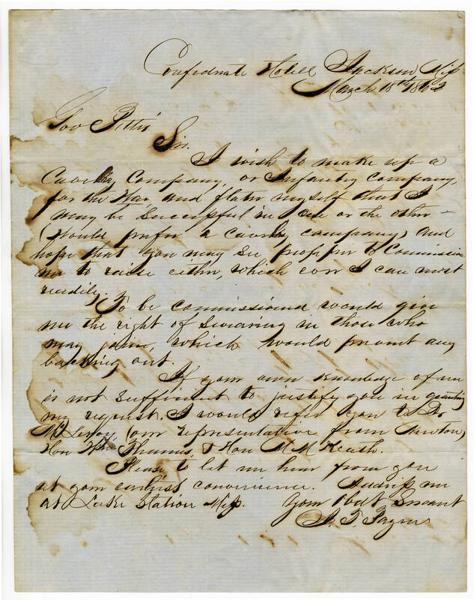 Confederate Hotell Jackson Miss
March 18th 1862
Gov Pettus
Sir
I wish to make up a
Cavalry Company, or Infantry company,
for the War and flater myself that I
may be successful in one or the other
(Would prefer a cavalry company) and
hope that you may see proper to Commission
me to raise either, which ever I can most
readily,
To be commissioned would give
me the right of swearing in those who
may joine, which would prevent any
backing out.
If your own knowledge of me
is not sufficient to justify you in granting
my request. I would refer you to Dr
(our representative from Newton)
Hon Thomas, & Hon M M Keath.
Please to let me hear from you
at your earliest convenience. Address me
at Lake Station Miss. Your Obdt Servant